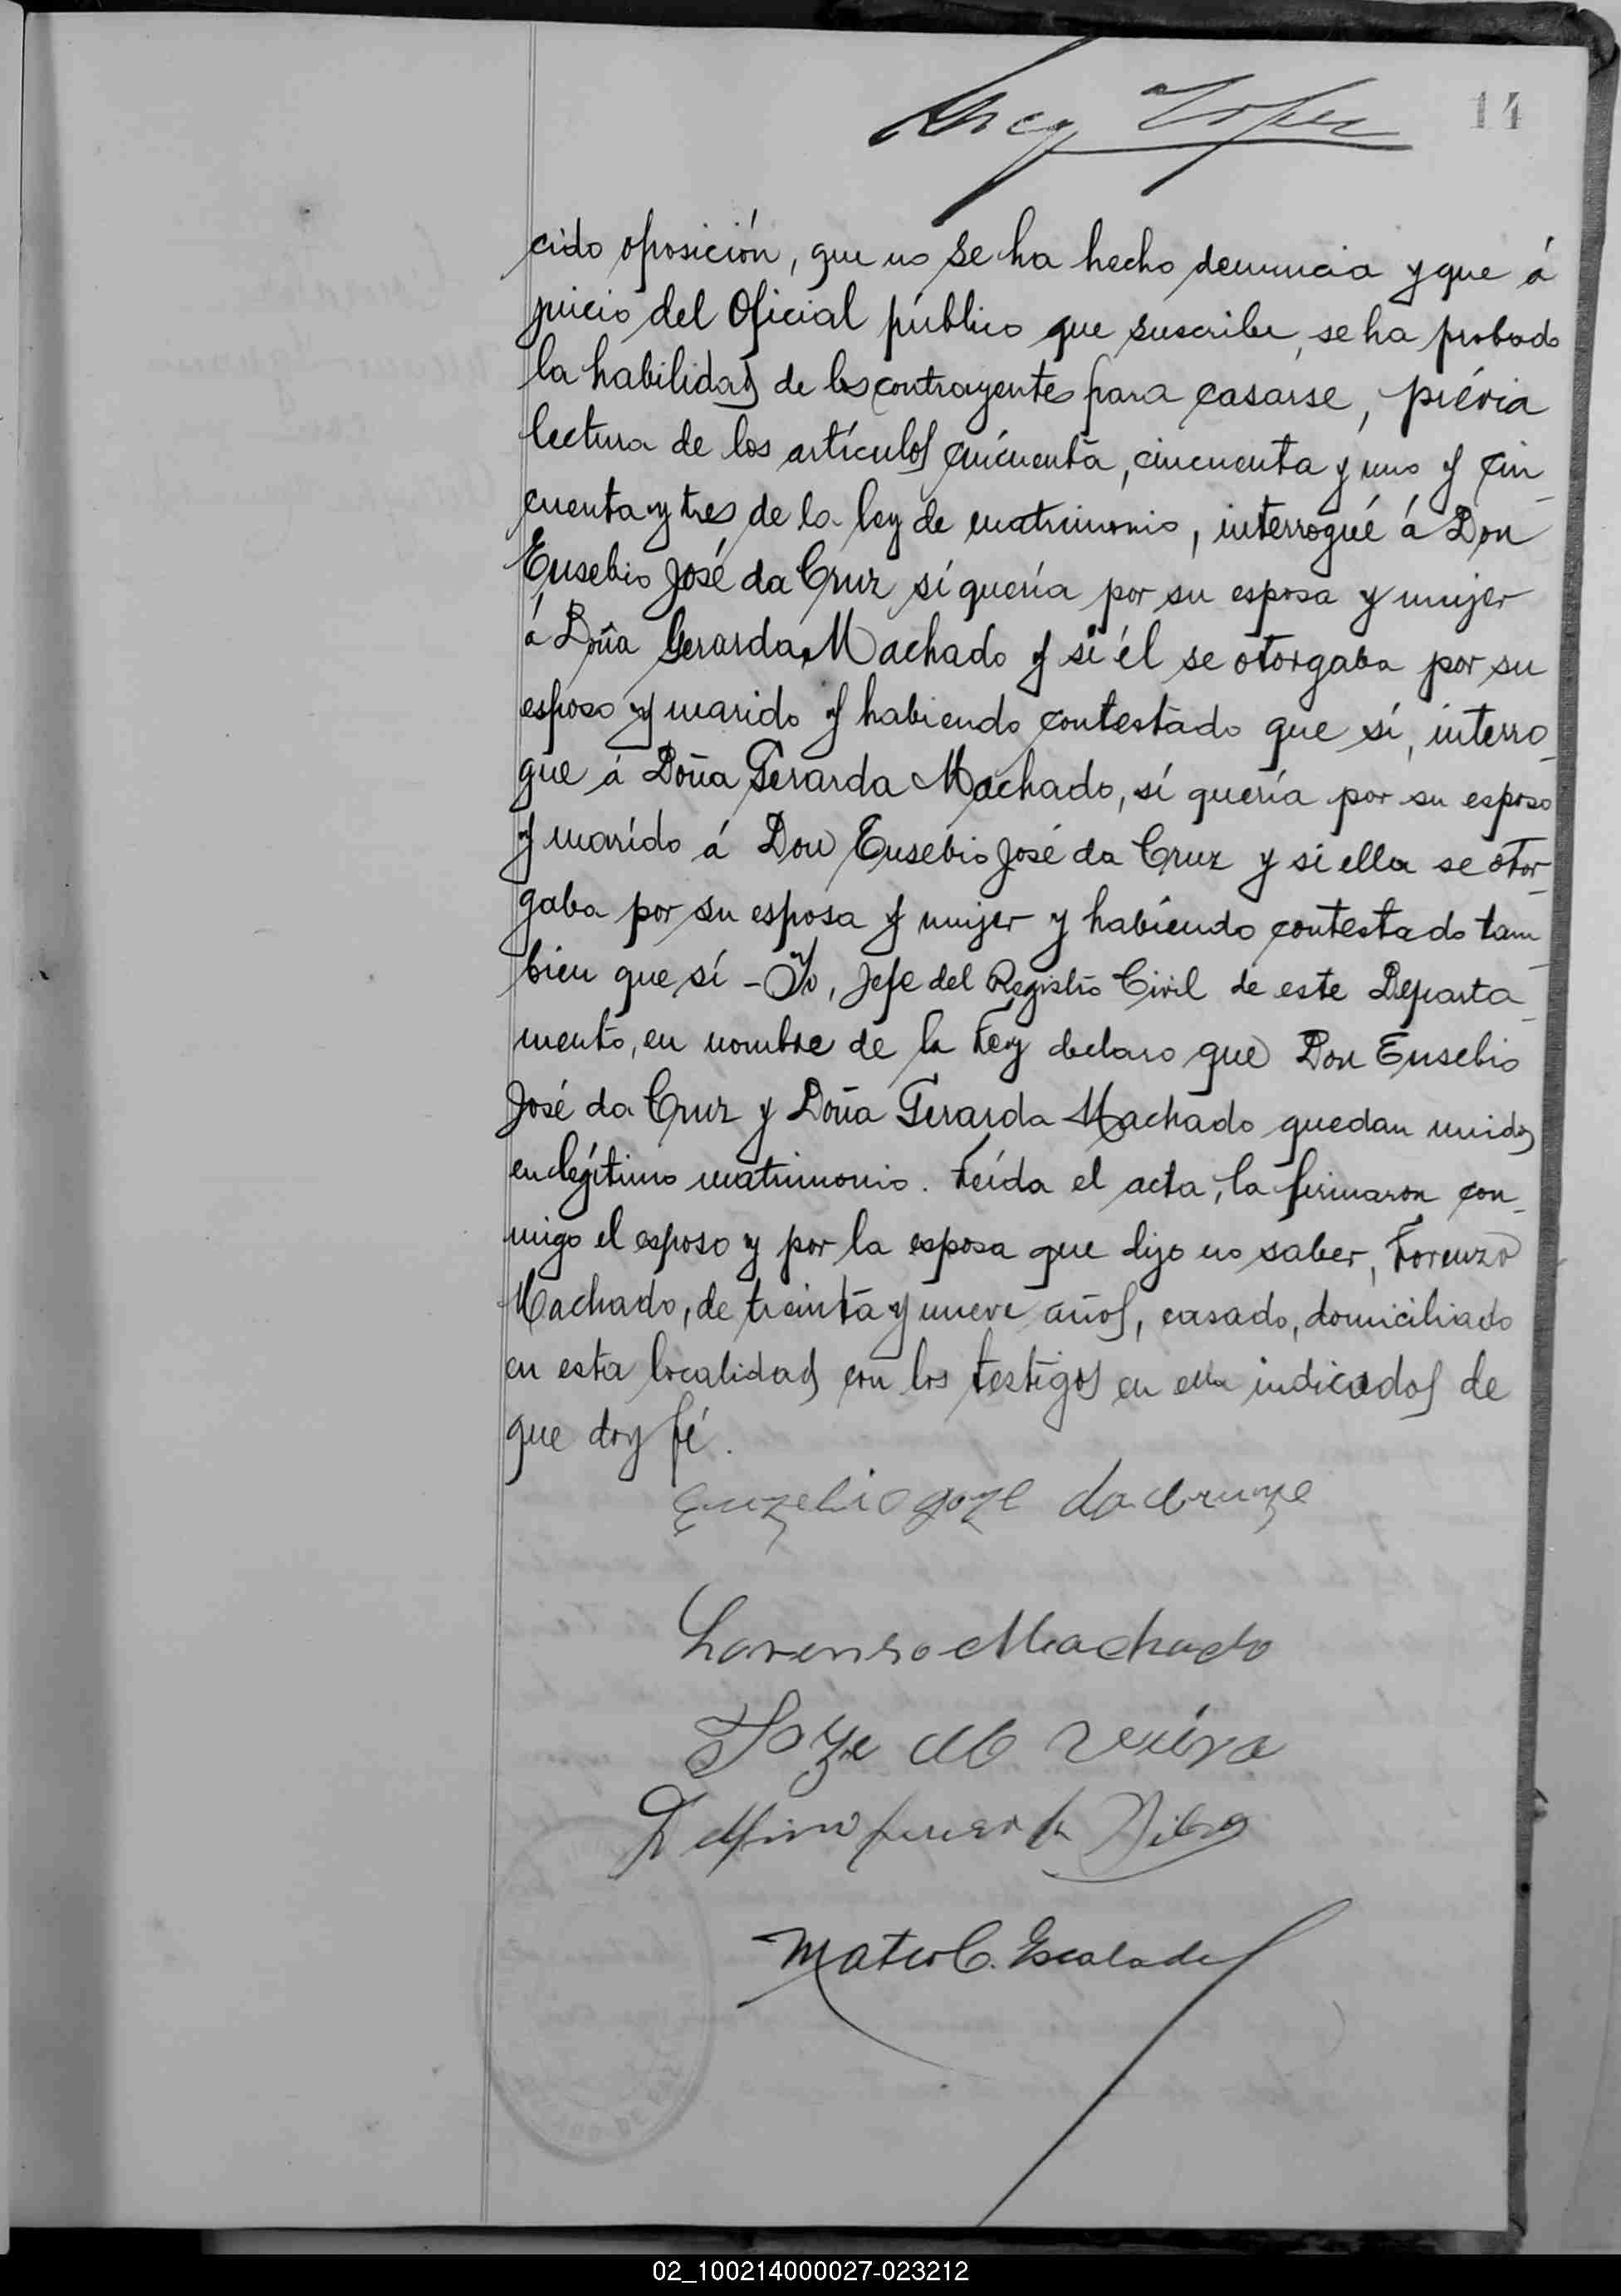 14
cido oposición, que no se ha hecho denuncia y que á
juicio del Oficial público que suscribe, se ha probado
la habilidad de los contrayentes para casarse, prévia
lectura de los artículos cincuenta, cincuenta y uno y cin
cuenta y tres de la ley de matrimonio, interrogué á Don
Eusebio José da Cruz sí quería por su esposa y mujer
á Doña Gerarda Machado y si él se otorgaba por su
esposo y marido y habiendo contestado que sí, interro_
gue á Doña Gerarda Machado, sí quería por su esposo
y marído á Don Eusebio José da Cruz y si ella se otor_
gaba por su esposa y mujer y habiendo contestado tam_
bien que sí - Yo, Jefe del Registro Civil de este Departa_
mento, en nombre de la Ley declaro que Don Eusebio
José da Cruz y Doña Gerarda Machado quedan unidos
en legítimo matrimonio. Leída el acta, la firmaron con_
migo el esposo y por la esposa que dijo no saber, Lorenzo
Machado, de treinta y nueve años, casado, domiciliado
en esta localidad con los testigos en ella indicados de
que doy fé.
Euzebio goze da cruze
Lorenso Machado
Joze
Delfino
Mateo C. Escalade
02_100214000027-023212